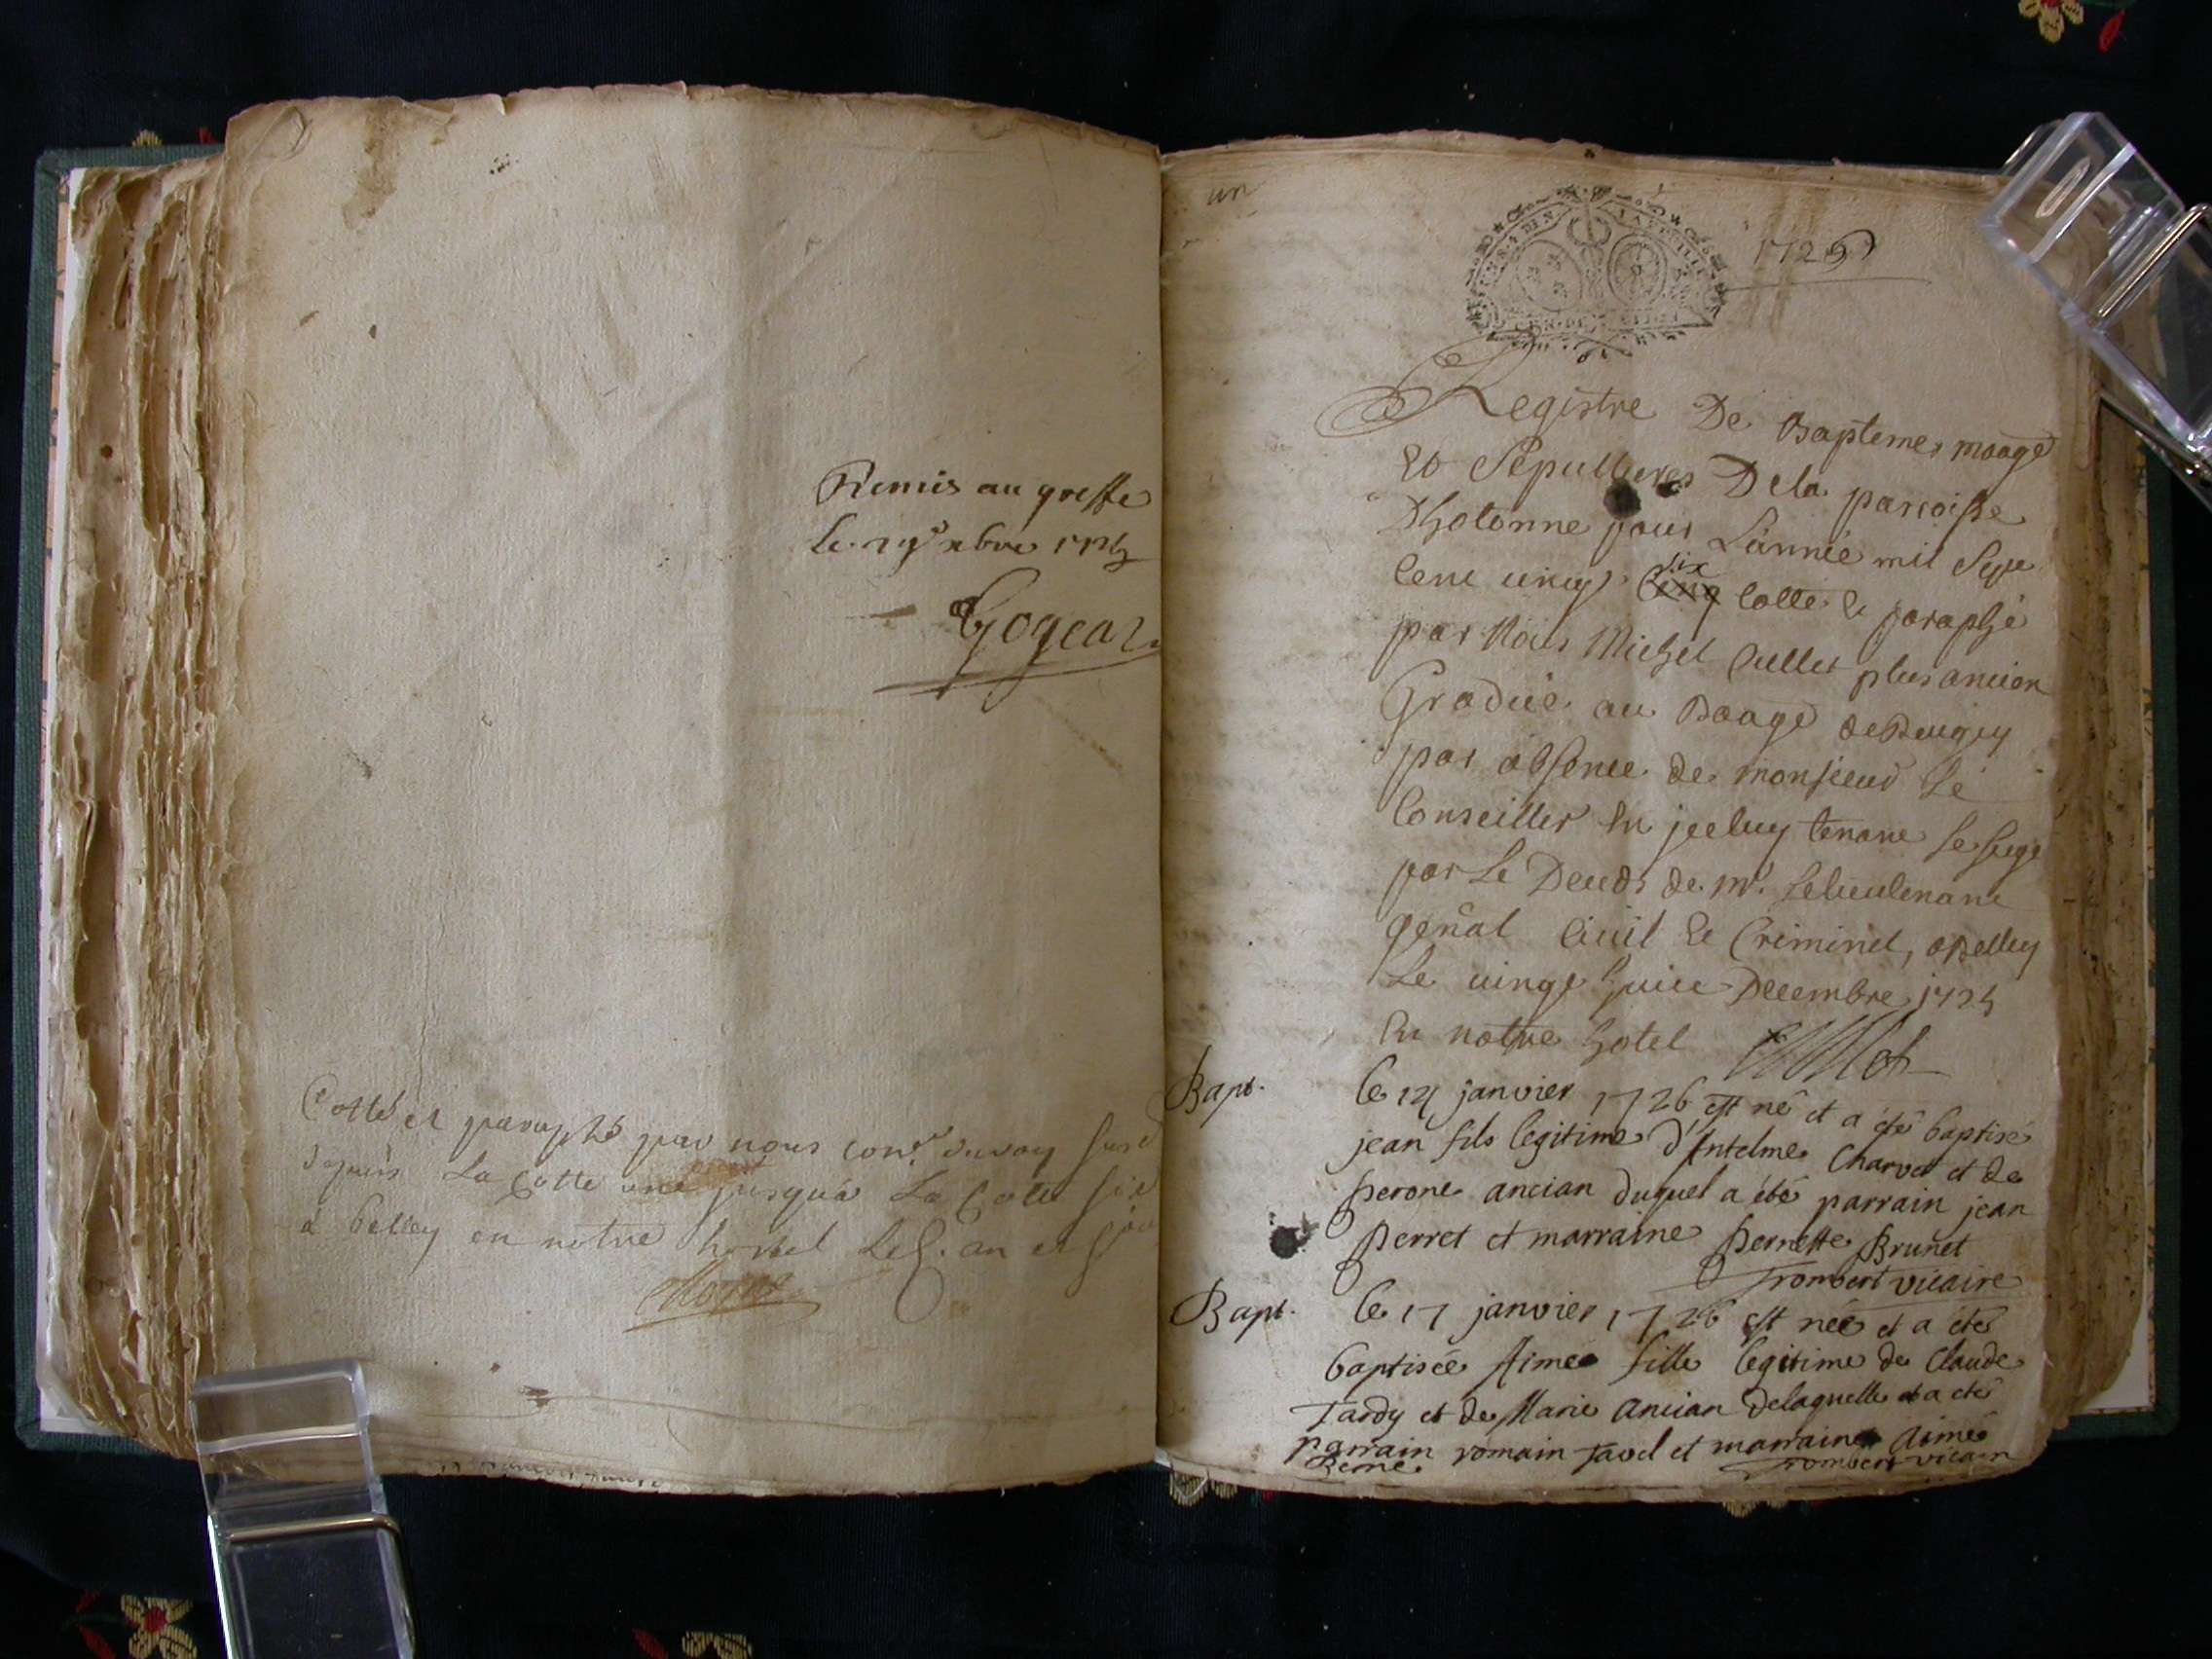 Remis au greffe
Le xbre
Gogeat
Cotté et paraphé par nous conr. du roy
depuis La Cotte une jusqu'a La Cotte six
a belley en notre hostel Les. an et jour
un
1726
Registre De Baptemes mãage
Et Sepultures De la paroisse
D'hotonne pour L'année mil Sept
Cent vingt Cinq six Cotté et paraphé
par Nous Michel Cullet plus ancien
Gradué au Baage de Bugey
par absence de monsieur Le
Conseiller En jceluy tenant Le siege
par Le Deceds de mr. Le lieutenant
genãl Civil et Criminel, a Belley
Le vingt huict Decembre 1725
En notre hotel Cullet
Bapt. le 14 janvier 1726 est né et a été baptisé
jean fils legitime d'Antelme Charvet et de
perone ancian duquel a été parrain jean
perret et marraine pernette Brunet
Trombert vicaire
Bapt. le 17 janvier 1726 est née et a été
baptisée Aimée fille legitime de Claude
Tardy et de Marie ancian Delaquelle a eté
parrain romain tavel et marraine Aimé
Berne Trombert vicaire